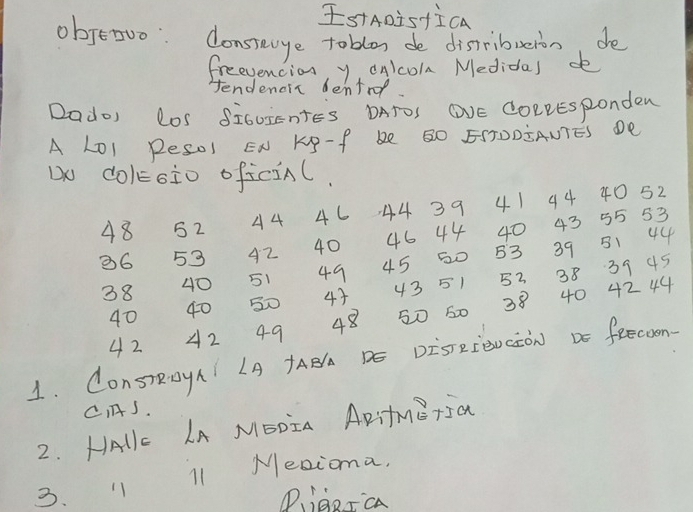 ESTADÍSTICA
OBJETIVO: Construye tablas de distribución de
frecuencias y calcola Medidas de
tendencia central.
Dados los SIGUIENTES DATOS QUE CORRESponden
A LOS pesos EN Kg-f de 50 ESTUDIANTES De
UN COLEGIO OfICIAL.
48 52 44 46 44 39 41 44 40 52
36 53 42 40 46 44 40 43 55 53
38 40 51 49 45 50 53 39 51 44
40 40 50 47 43 51 52 38 39 45
42 42 49 48 50 50 38 40 42 44
1. CONSTRUYA LA TABLA DE DISTRIBUCIÓN DE frecuen-
CIAS.
2. HAlle LA MEDIA ARITMÉTICA
3. " " Mediana.
RÚBRICA